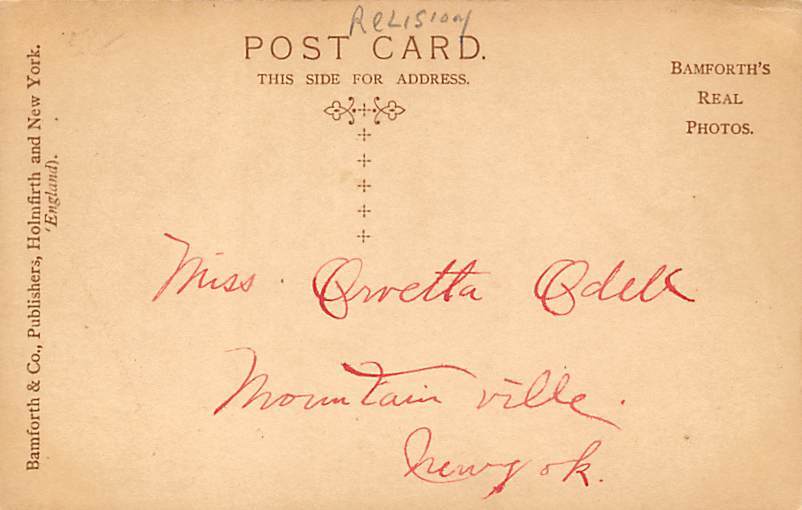 Religion
POST CARD.
THIS SIDE FOR ADDRESS.
BAMFORTH'S
REAL
PHOTOS.
Bamforth & Co., Publishers, Holmfirth and New York.
(England).
Miss Orvetta Odell
Mountain ville.
Newyok.